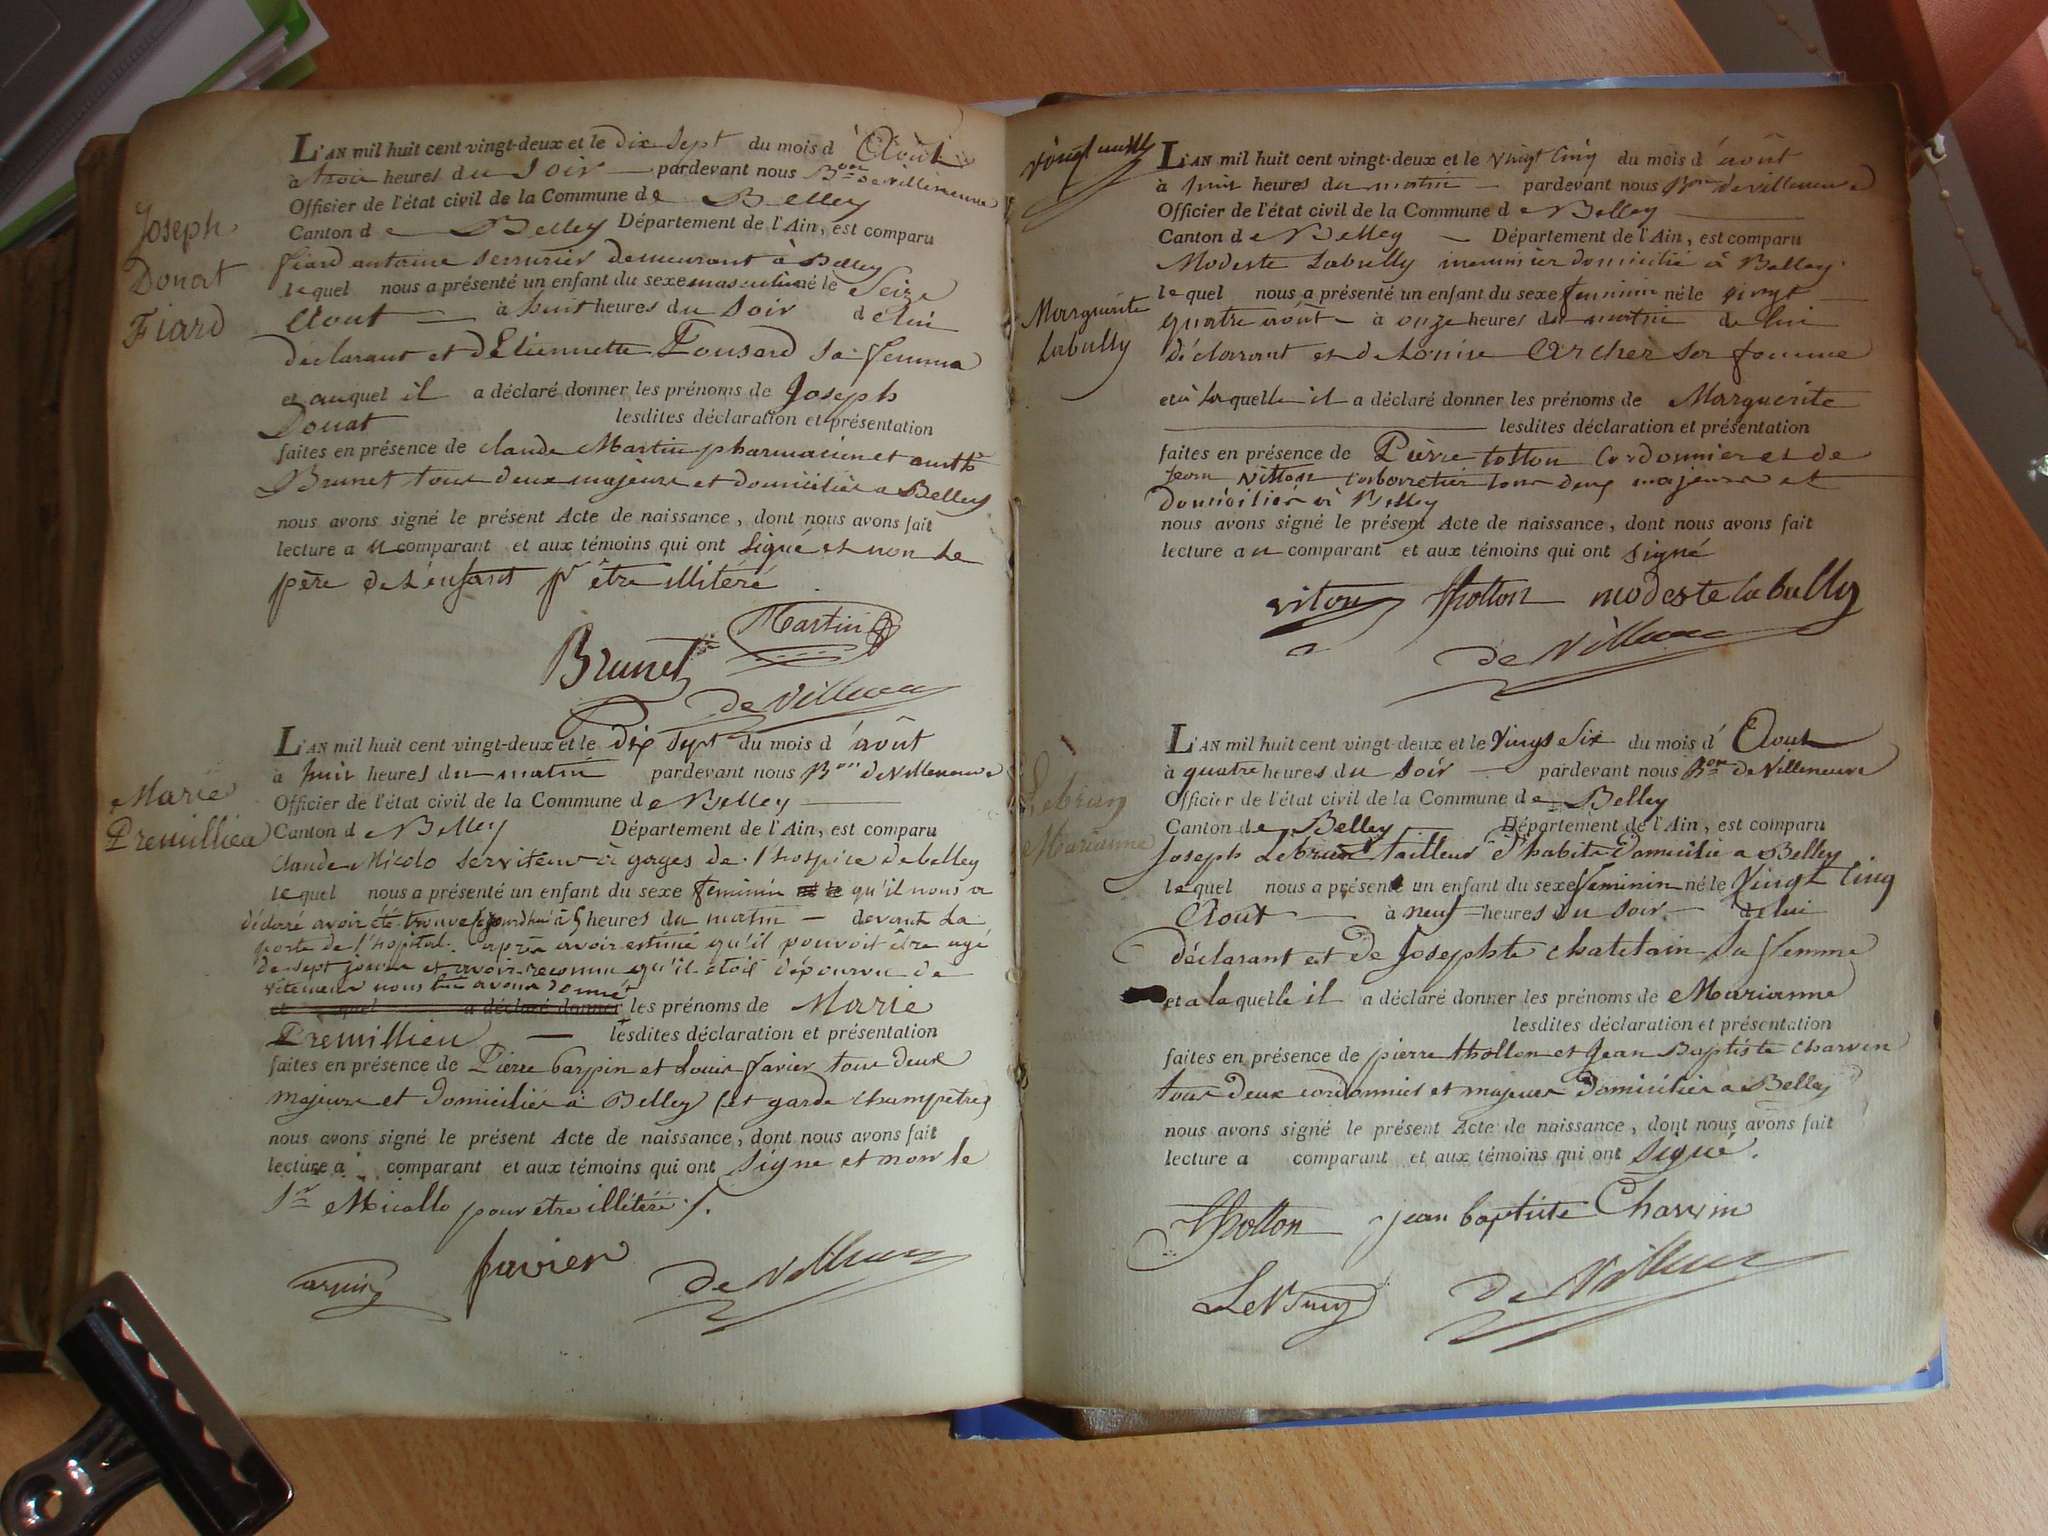 Joseph
Donat
Fiard
L'AN mil huit cent vingt-deux et le dix Sept du mois d' Août
à trois heures du Soir pardevant nous Bon de villeneuve
Officier de l'état civil de la Commune de Belley
Canton de Belley Département de l'Ain, est comparu
fiard antoine serrurier demeurant à Belley
lequel nous a présenté un enfant du sexe masculin né le Seize
Aout à huit heures du Soir de lui
déclarant et d'Etiennette Ponsard sa femme
et auquel il a déclaré donner les prénoms de Joseph
Donat lesdites déclaration et présentation
faites en présence de claude Martin pharmacien et anthe
Brunet tous deux majeurs et domiciliés a Belley
nous avons signé le présent Acte de naissance, dont nous avons fait
lecture au comparant et aux témoins qui ont signé et non le
père de l'enfant pr être illitéré
Martin
Brunet
de Villeneuve
Marie
Premillieu
L'AN mil huit cent vingt-deux et le dix sept du mois d' août
à huit heures du matin pardevant nous Bon de Villeneuve
Officier de l'état civil de la Commune de Belley
Canton de Belley Département de l'Ain, est comparu
Claude Micolo serviteur à gages de l'hospice de belley
lequel nous a présenté un enfant du sexe feminin qu'il nous a
déclaré avoir été trouvé aujourdhui à 5 heures du matin devant la
porte de l'hopital. après avoir estimé qu'il pouvoit être agé
de sept jours et avoir reconnu qu'il etoit dépourvu de
vetemens nous lui avons donné
et quel a déclaré donner les prénoms de Marie
Premillieu lesdites déclaration et présentation
faites en présence de Pierre Carpin et Louis favier tous deux
majeurs et domiciliés à Belley (et garde champetre)
nous avons signé le présent Acte de naissance, dont nous avons fait
lecture a comparant et aux témoins qui ont signé et non le
Sr Micollo pour être illétéré
favier
de Villeneuve
vingt neuf
Marguerite
Labully
L'AN mil huit cent vingt-deux et le vingt cinq du mois d' août
à huit heures du matin pardevant nous Bon de villeneuve
Officier de l'état civil de la Commune de Belley
Canton de Belley Département de l'Ain, est comparu
Modeste Labully menuisier domicilié à Belley
lequel nous a présenté un enfant du sexe feminin né le vingt
quatre août à onze heures du matin de lui
déclarant et de Louise Archer sa femme
et à laquelle il a déclaré donner les prénoms de Marguerite
lesdites déclaration et présentation
faites en présence de Pierre totton Cordonnier et de
Jean Vitton cabaretier tous deux majeurs et
domiciliés à Belley
nous avons signé le présent Acte de naissance, dont nous avons fait
lecture au comparant et aux témoins qui ont signé
viton thotton modeste labully
de Villeneuve
Lebrun
Marianne
L'AN mil huit cent vingt-deux et le Vingt Six du mois d' Aout
à quatre heures du Soir pardevant nous Bon de Villeneuve
Officier de l'état civil de la Commune de Belley
Canton de Belley Département de l'Ain, est comparu
Joseph Lebrun tailleur d'habits domicilié a Belley
lequel nous a présenté un enfant du sexe feminin né le Vingt Cinq
Août à neuf heures du Soir de lui
déclarant et de Josephte chatelain sa femme
et a laquelle il a déclaré donner les prénoms de Marianne
lesdites déclaration et présentation
faites en présence de pierre thollon et Jean Baptiste charvin
tous deux cordonniés et majeurs domiciliés a Belley
nous avons signé le présent Acte de naissance, dont nous avons fait
lecture a comparant et aux témoins qui ont signé.
thotton jean baptiste Charvin
LeBrun de Villeneuve